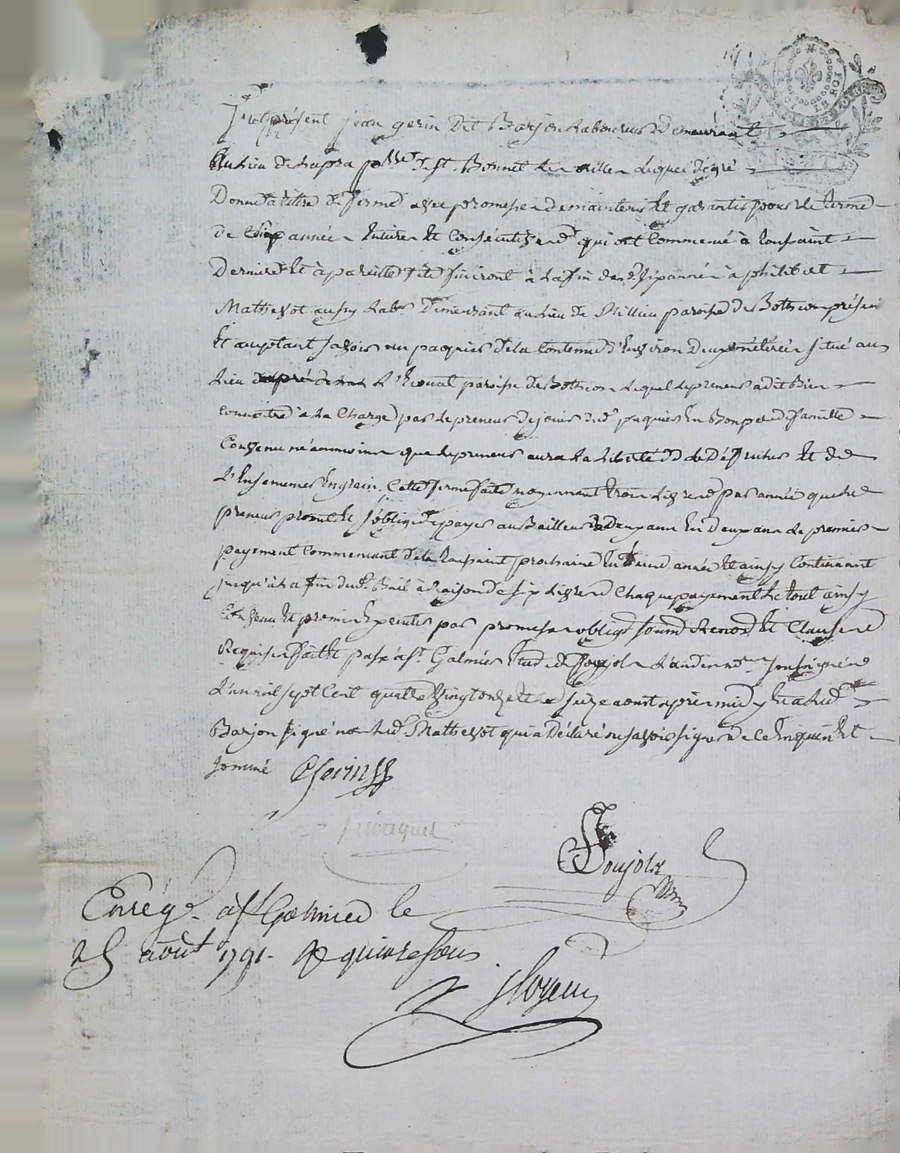 fut présent jean gerin Dit Barjon Laboureur Demeurant
Au Lieu de Lapra psse de st. Bonnet Lequel de gré
Donne à titre de ferme avec promesse de maintenir Et garantir pour Le terme
de Cinq année Entiere Et Consécutive qui ont Commencé à Toussaint
Derniere Et à pareille fête finiront à La fin desd. année à philibert
Mathevot aussy Labr Demeurant au Lieu de paroisse de Bothéon présent
Et acceptant sçavoir un paquier de La Contenue d'Environ Deux meterée situé au
Lieu de L'Etoual paroisse de Bothéon Lequel Le preneur a dit Bien
connoitre à La Charge par Le preneur de jouir dud. paquier En Bon pere de famille
Convenu néanmoins que Le preneur aura La Liberté de Défricher Et de
L'Ensemencer En grain, Cette ferme faite moyennant trois Livres par année que Led.
preneur promet Et s'oblige de payer au Bailleur de Deux ans En Deux ans Le premier
payement Commencant à La Toussaint prochaine En une année Et ainsy Continuant
jusqu'à La fin dud. Bail à Raison de six Livres Chaque payement Le tout ainsy
Convenu Et promis Executer par promesse oblign soumn Renonn Et Clause
Requise fait Et passé à st. Galmier Etude de Soujols L'un des nres soussigné
L'an mil sept Cent quatre vingt onze Et Le seize aout après midy Et a Led.
Barjon signé non Led. Mathevot qui a Déclaré ne sçavoir signer de Ce Enquis Et
sommé Gerin
Soujols
Enregé. à st Galmier le
25 août 1791. R quinze sous